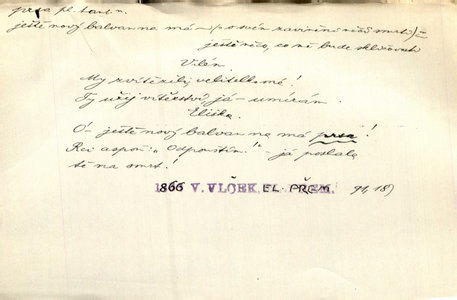 prsa pl. tant. n.
ještě nový balvan na má
ještě něco, co mě bude skličovati
Vilém.
My zvítězili, velitelko má!
Ty užij vítězství, já – umírám.
Eliška.
Ó – ještě nový balvan na má prsa!
Rci aspoň: „Odpouštím!“ – já poslala
tě na smrt!
1866 V. VLČEK, EL. PŘEM. 91, 18)